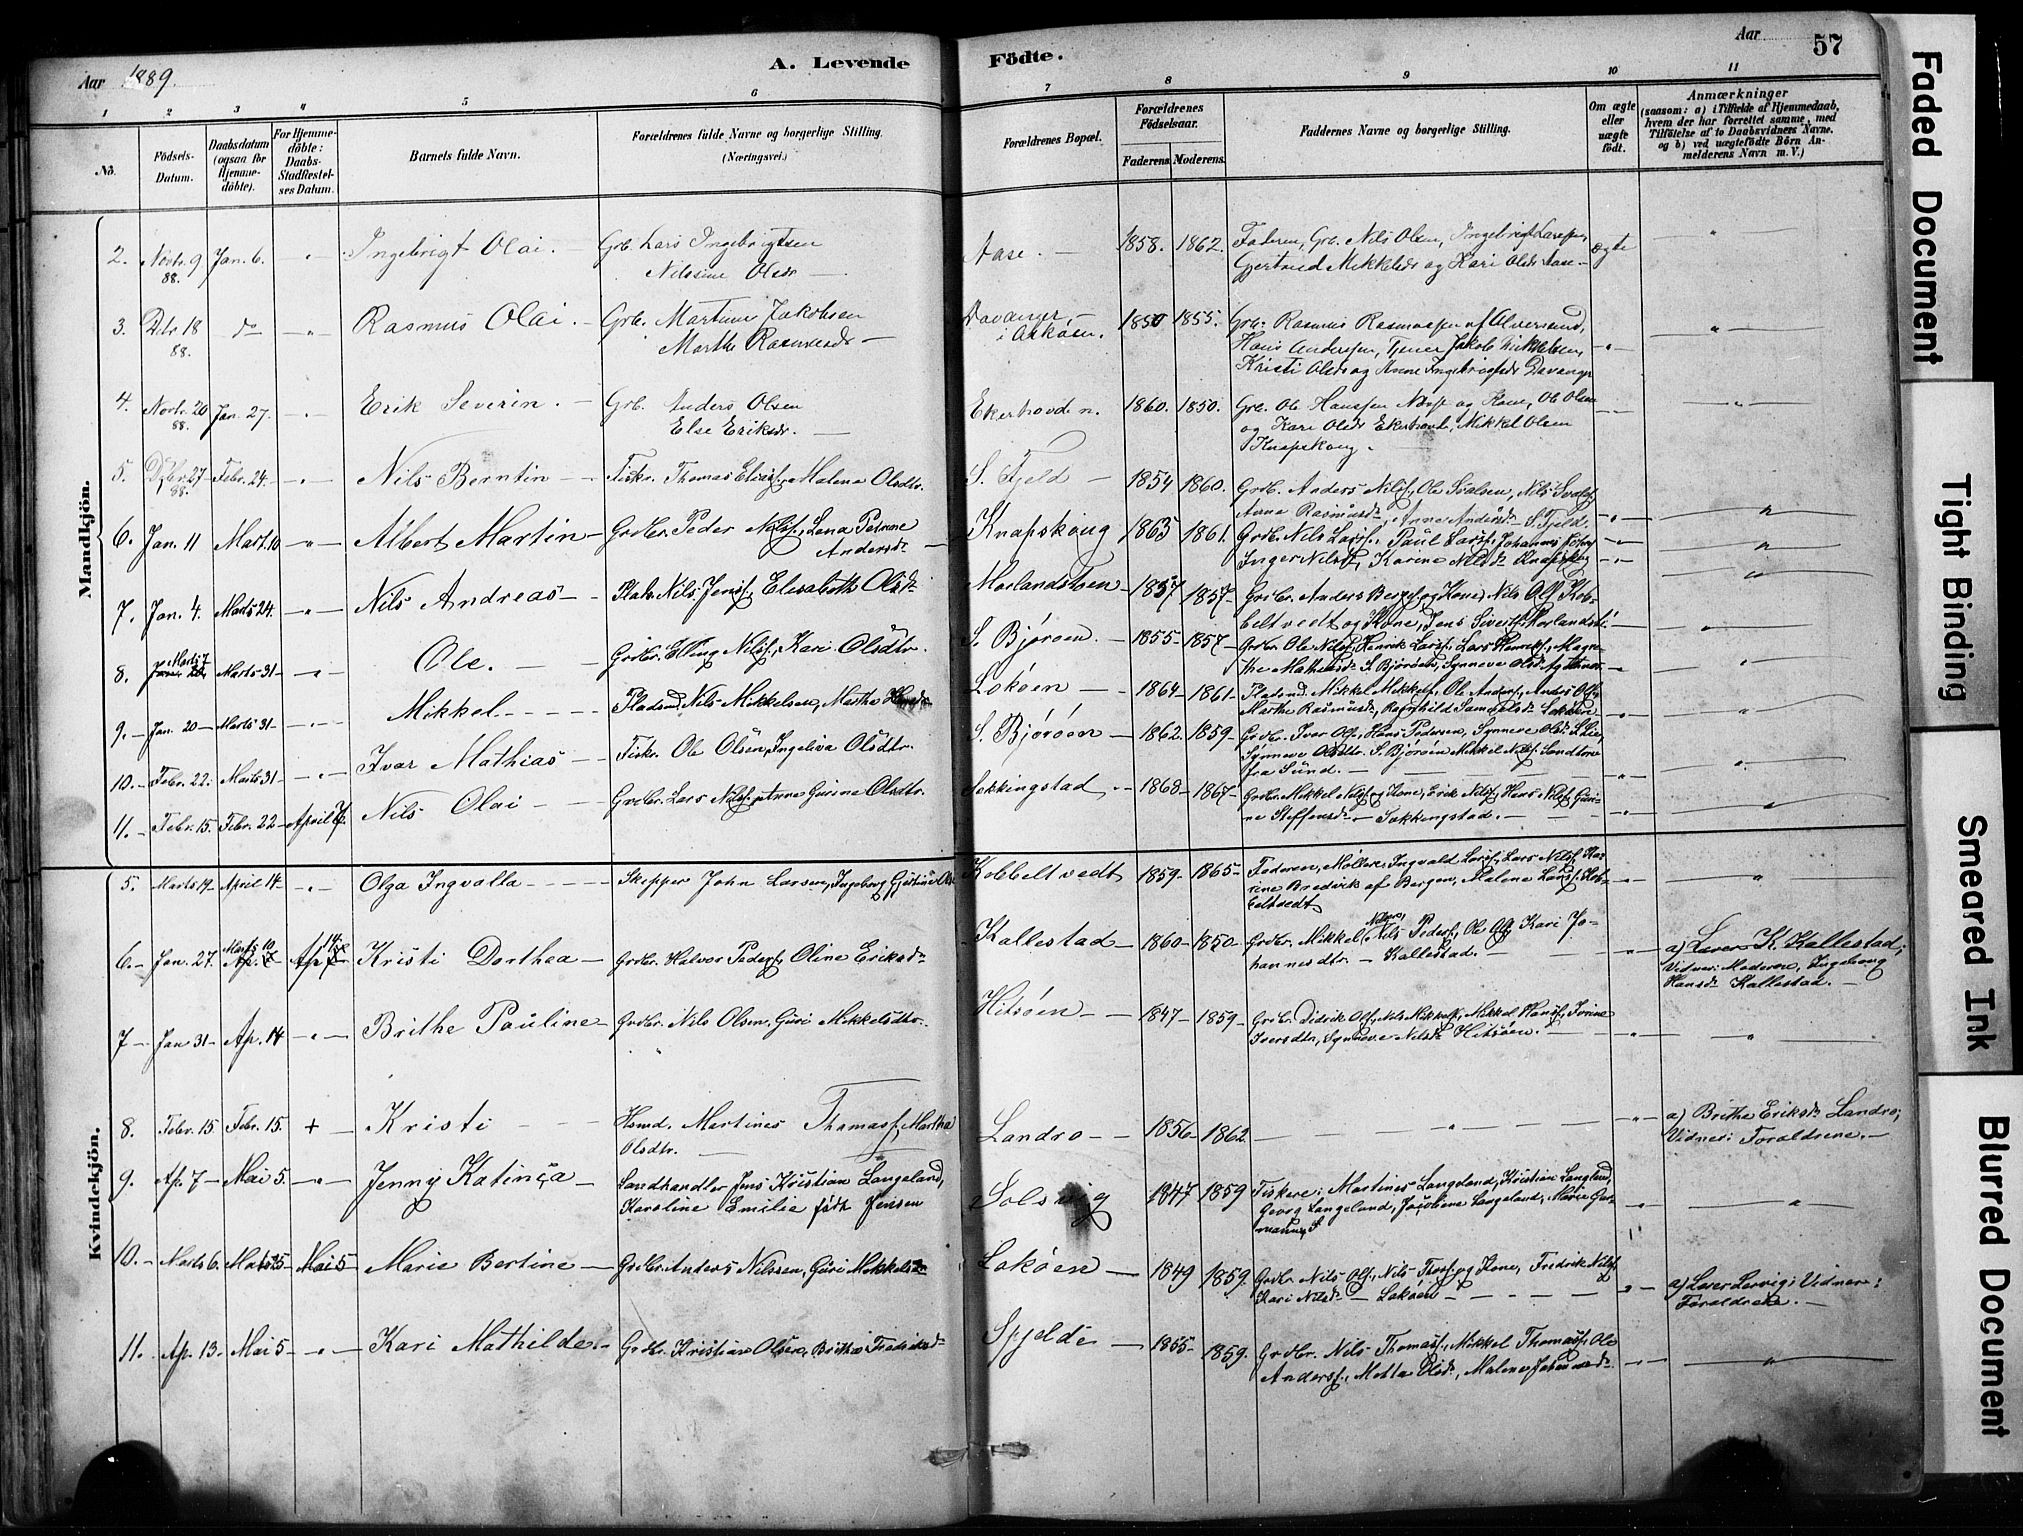 Aar 1889.
A. Levende Födte.
Aar
57
1 2 3 4 5 6 7 8 9 10 11
No.
Födsels-
Datum.
Daabsdatum
(ogsaa for
Hjemme-
döbte).
For Hjemme-
döbte:
Daabs-
Stadfæstel-
ses Datum.
Barnets fulde Navn.
Forældrenes fulde Navne og borgerlige Stilling.
(Næringsvei.)
Forældrenes Bopæl.
Forældrenes
Födselsaar.
Faderens. Moderens.
Faddernes Navne og borgerlige Stilling.
Om ægte
eller
uægte
födt.
Anmærkninger
(saasom: a) i Tilfælde af Hjemmedaab,
hvem der har forrettet samme, med
Tilföielse af to Daabsvidners Navne.
og b) ved uægtefödte Börn An-
melderens Navn m.V.)
Mandkjön.
2. Novbr. 9 88. Jan. 6. " Ingebrigt Olai. Grb. Lars Ingebrigtsen
Nilsine Olsdr
Aase. 1858. 1862. Faderen, Grb. Nils Olsen, Ingebrigt Larssen,
Gjertrud Mikkelsdr og Kari Olsdr Aase ægte "
3. 18 88. do " Rasmus Olai. Grb. Martinus Jakobsen
Marthe Rasmusdr
Davanger,
i Askøen. 1850 1855. Grb. Rasmus Rasmussen af Alversund,
Hans Anderssen, Tjener Jakob Mikkelsen,
Kristi Olsdr og Anne Davanger " "
4. Novbr. 20 88. Jan. 27. " Erik Severin. Grb. Anders Olsen
Else Eriksdr.
Ekerhovd n. 1860. 1850. Grb. Ole Hanssen og Kone, Ole Olsen
og Kari Olsdr Ekerhovd, Mikkel Olsen
Knapskoug " "
5. Dbr. 27 88. Febr. 24. " Nils Berntin Fiskr. Thomas Eliass., Malene Olsdtr.
S. Fjeld 1854 1860. Grdbr. Anders Nilss., Ole
Anna Rasmusdr, Anne Andersdr S. Fjeld. " "
6. Jan. 11 Mart. 10 " Albert Martin Grdbr. Peder Nilss., Lena Petrine
Andersdr
Knapskoug 1863 1861. Grdbr. Nils Larss., Paul Larss., Johannes
Inger Nilsdr, Karine Nilsdr Knapskog " "
7. Jan. 4. Marts 24. " Nils Andreas Nils Jenss., Elisabeth Olsdr
Morlandstøen 1857 1857 Grdbr. Anders og Kone, Nils Olss. Kob-
beltvedt og Kone, Jens Siverts. Morlandst. " "
8. Marts 7 Marts 31 " Ole. Grdbr. Elling Nilss., Kari Olsdtr.
S. Bjørøen. 1855 1857 Grdbr. Ole Nilss., Henrik Larss., Lars Henrikss., Magre-
the Mathiasdr S. Bjørøen, Synneve Olsdr " "
9. Jan. 20 Marts 31 " Mikkel Pladsmd. Nils Mikkelsen, Marthe
Lokøen 1864 1861 Pladsmd. Mikkel Mikkels., Ole Anders., Anders Ols.,
Marthe Rasmusdr, Ragnhild Samuelsdr Lokøen " "
10. Febr. 22. Marts 31 " Ivar Mathias Fiskr. Ole Olsen, Ingeliva Olsdtr.
S. Bjørøen 1862 1859 Grdbr. Ivar Ols., Hans Pedersen, Synneve Olsdr
Synneve Olsdtr. S. Bjørøen Mikkel Nilss.
fra Sund. " "
11. Febr. 15. Febr. 22 April Nils Olai Grdbr. Lars Nilss., Anne Gurine Olsdtr.
Sekkingstad 1868 1867 Grdbr. Mikkel Nilss. og Kone, Erik Nilss., Hans Nilss., Guri-
ne Steffensdr Sekkingstad. " "
Kvindekjön.
5. Marts 19 April 14 " Olga Ingvalla Skipper John Larsen, Ingeborg
Kobbeltvedt 1859 1865 Faderen, Møller Ingvald Larss., Lars Nilss., Ka-
rine Bredvik af Bergen, Malene Kob-
beltvedt " "
6. Jan. 27. Marts 10 Ap. 14 Kristi Dorthea Grdbr. Halvor Peders., Oline Eriksdr
Kallestad 1860 1850 Grdbr. Mikkel Nils Peders., Ole Ols., Kari Jo-
hannesdtr. Kallestad. " a) Lærer K. Kallestad;
Vidner: Moderen, Ingeborg
Hansdr Kallestad.
7 Jan 31 Ap. 14 " Brithe Pauline Grdbr. Nils Olsen, Guri Mikkelsdtr.
Hitsøen 1847 1859 Grdbr. Didrik Ols., Nils Mikkels., Mikkel Hanss.,
Iversdtr, Synneve Nilsdr Hitsøen. " "
8. Febr. 15 Febr. 15. + Kristi Hsmd. Martines Thomass., Martha
Olsdtr.
Landro 1856 1862 " " a) Brithe Eriksdr Landro;
Vidner: Forældrene.
9. Ap. 7 Mai 5. " Jenny Katinca Landhandler Jens Kristian Langeland,
Karoline Emilie født Jensen
Solsvig 1847 1859 Fiskere: Martines Langeland, Kristian Langeland,
Georg Langeland, Jacobine Langeland, Marie
" "
10. Marts 6. Marts 25 Mai 5 Marie Bertine Grdbr. Anders Nilssen, Guri Mikkelsdr
Lokøen 1849 1859. Grdbr. Nils Ols., Nils og Kone, Fredrik Nilss.,
Kari Nilsdr Lokøen " a) Lærer Lervig; Vidner:
Forældrene.
11. Ap. 13. Mai 5 " Kari Mathilde Grdbr. Kristian Olsen, Brithe Fredriksdr
Spjelde 1855 1859. Grdbr. Nils Thomass., Mikkel Thomass., Ole
Anderss., Metta Olsdr, Malene Johannesdr. " "
Faded Document
Tight Binding
Smeared Ink
Blurred Document